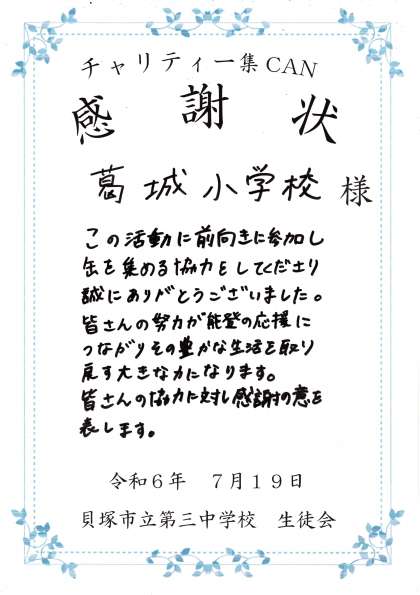 チャリティー集CAN
感謝状
葛城小学校 様
この活動に前向きに参加し
缶を集める協力をしてくださり
誠にありがとうございました。
皆さんの努力が能登の応援に
つながりその豊かな生活を取り
戻す大きな力になります。
皆さんの協力に対し感謝の意を
表します。
令和6年 7月19日
貝塚市立第三中学校 生徒会